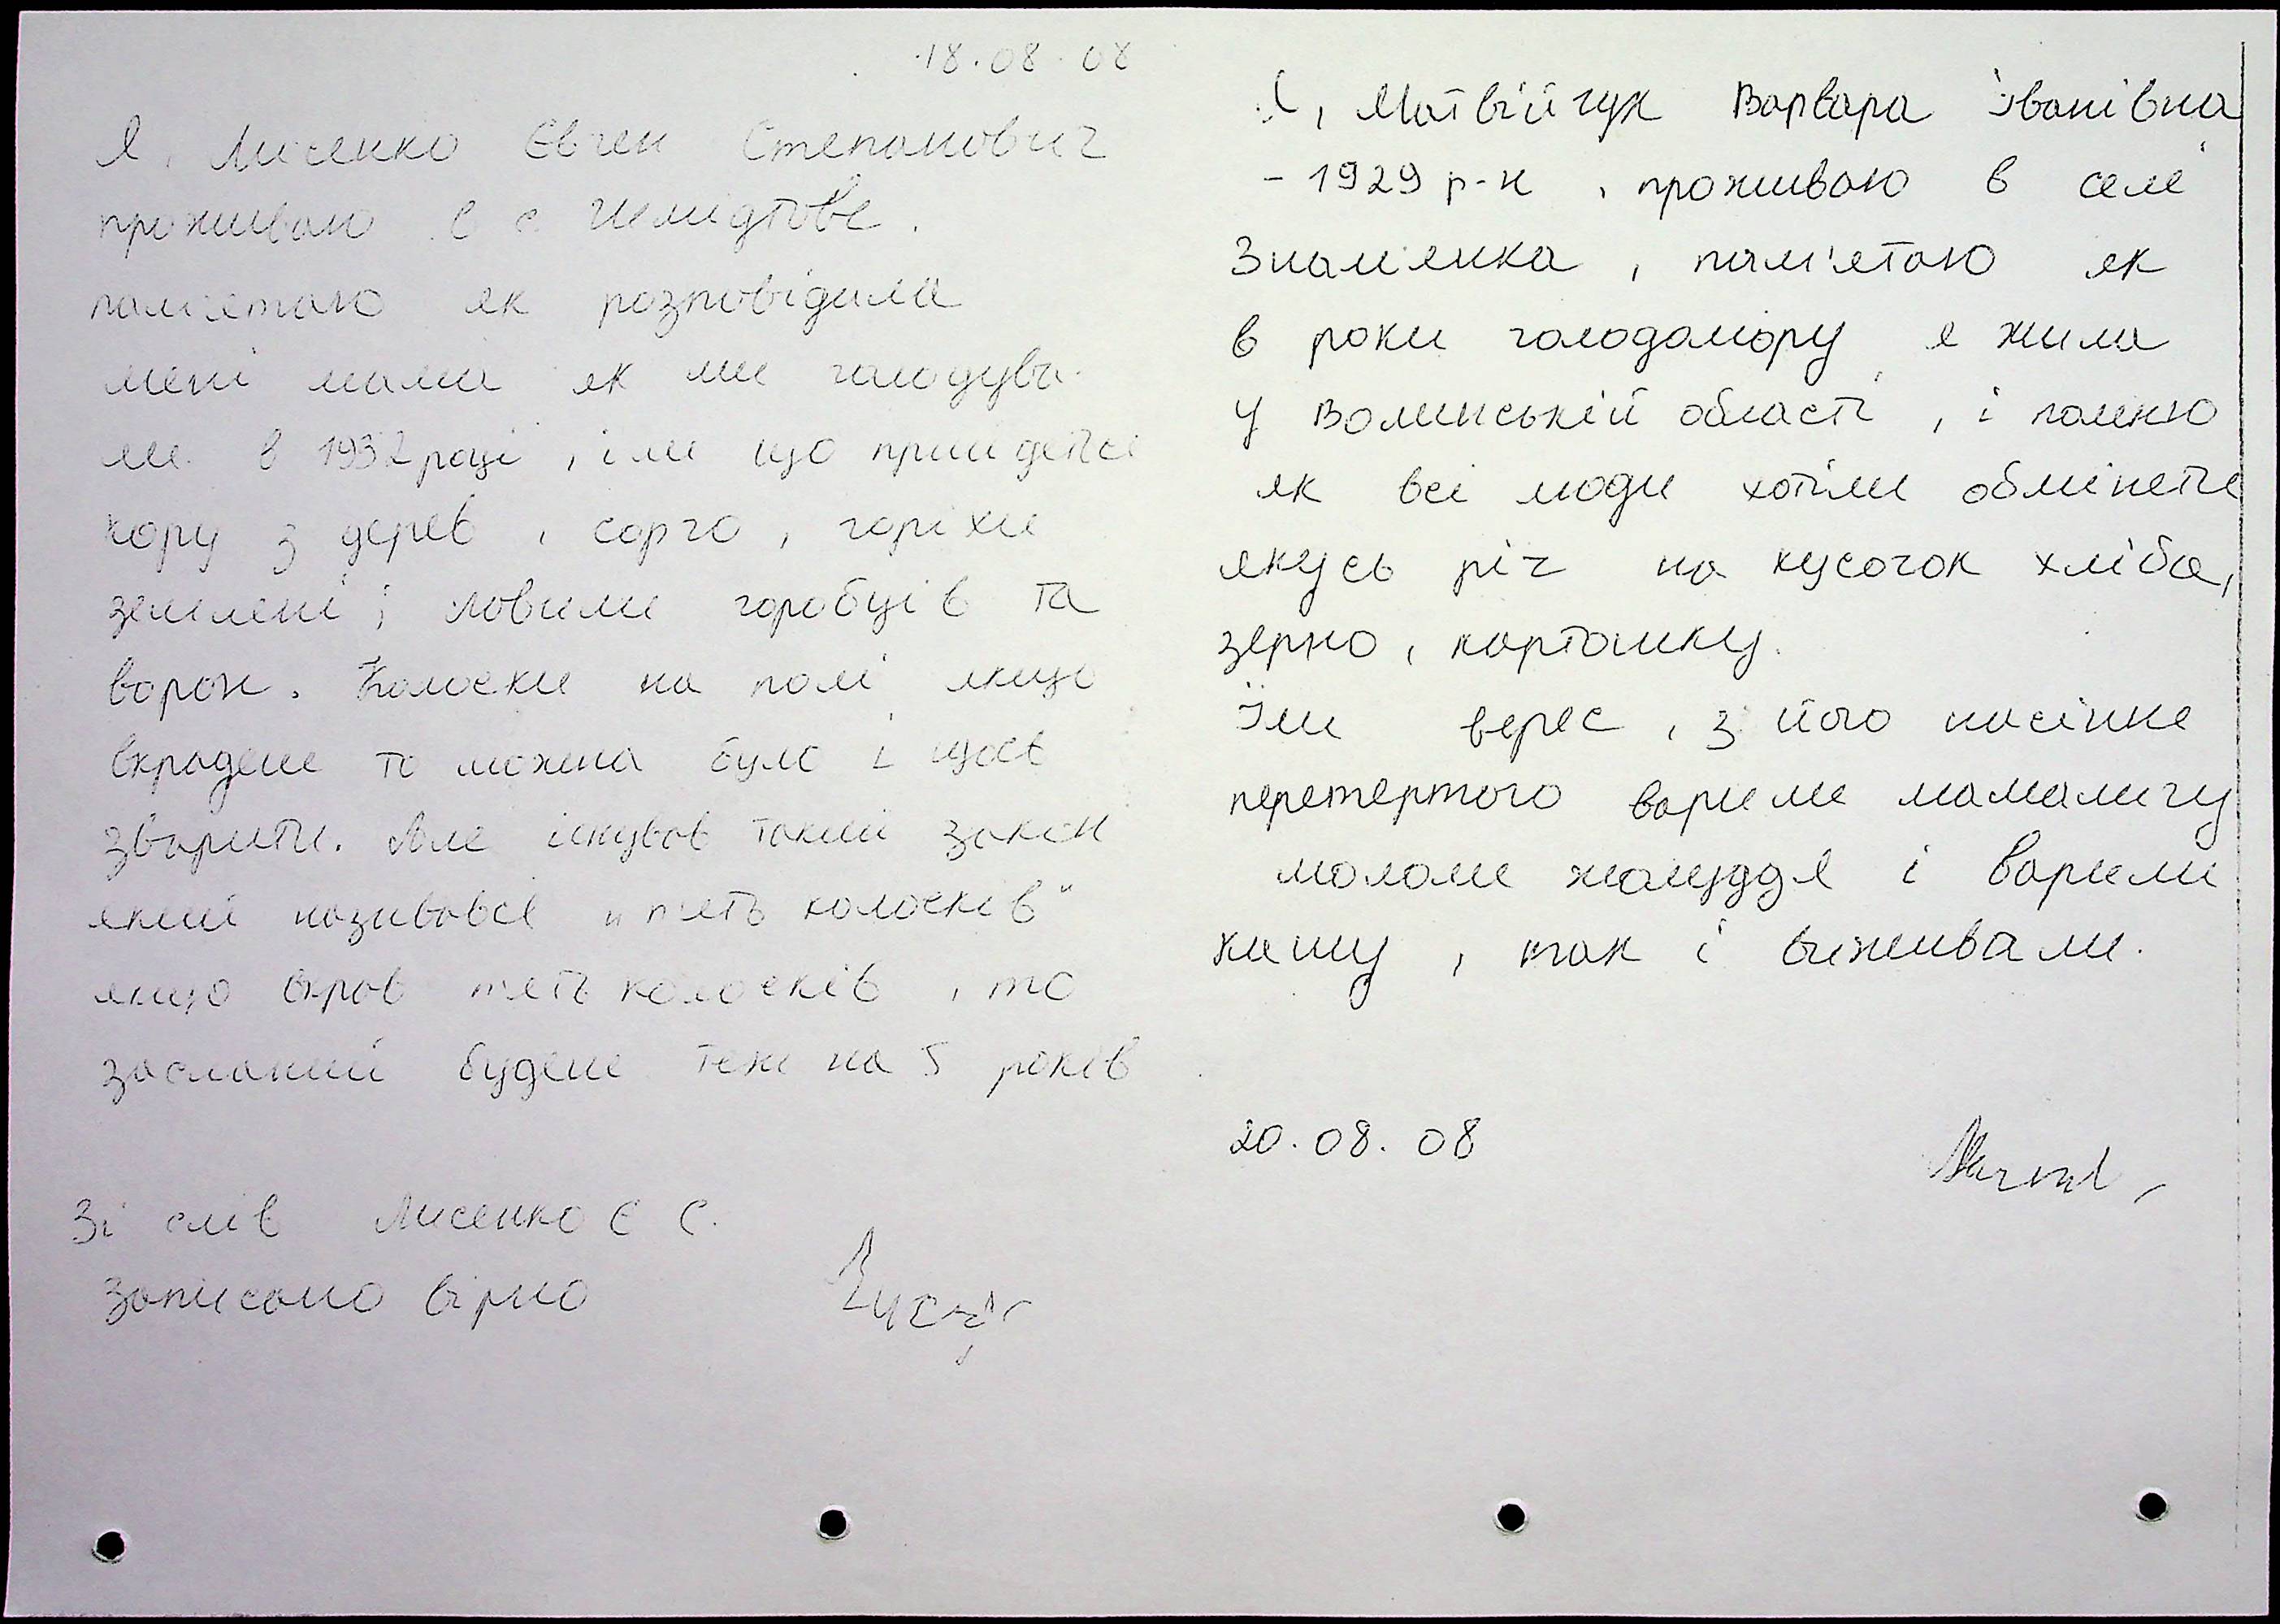 18.08.08
Я, Лисенко Євген Степанович
проживаю в с.
пам'ятаю як розповідала
мені мама як ми голодува-
ли в 1932 році, їли що прийдеться
кору з дерев, сорго, горіхи
земляні, ловили горобців та
ворон. Колоски на полі якщо
вкрадеш то можна було і щось
зварити. Але існував такий закон
який називався "п'ять колосків"
якщо вкрав п'ять колосків, то
засланий будеш теж на 5 років
Зі слів Лисенко Є С.
записано вірно
Я, Матвійчук Варвара Іванівна
- 1929 р-н, проживаю в селі
Знам'янка, пам'ятаю як
в роки голодоміору я жила
у Волинській області, і помню
як всі люди хотіли обміняти
якусь річ на кусочок хліба,
зерно, картошку.
Їли верес, з його насіння
перетертого варили мамалигу
мололи жолуддя і варили
кашу, так і виживали.
20.08.08